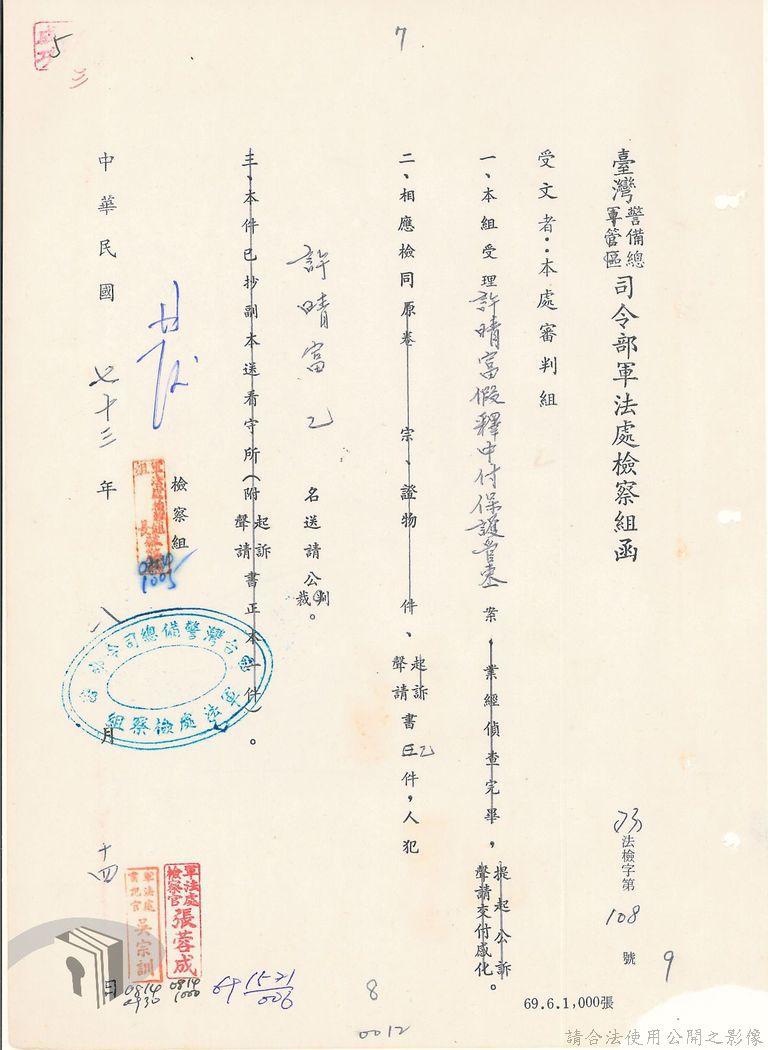 臺灣警備總軍管區司令部軍法處檢察組函
73法檢字第108號
受文者：本處審判組
一、本組受理許晴富假釋中付保護管束案，業經偵查完畢，提起公訴聲請交付感化。
二、相應檢同原卷　宗、證物　件、起訴聲請書乙件，人犯
許晴富乙名送請公判裁。
三、本件已抄副本送看守所（附起訴聲請書正本一件）。
檢察組
中華民國七十三年八月十四日
軍法處檢察官張蓉成
0814
1000
軍法處書記官吳宗訓
0814
0930
0814
1005
台灣警備總司令部
軍法處檢察組
69
1521
006
69.6.1,000張
5
三
7
8
9
0012
請合法使用公開之影像